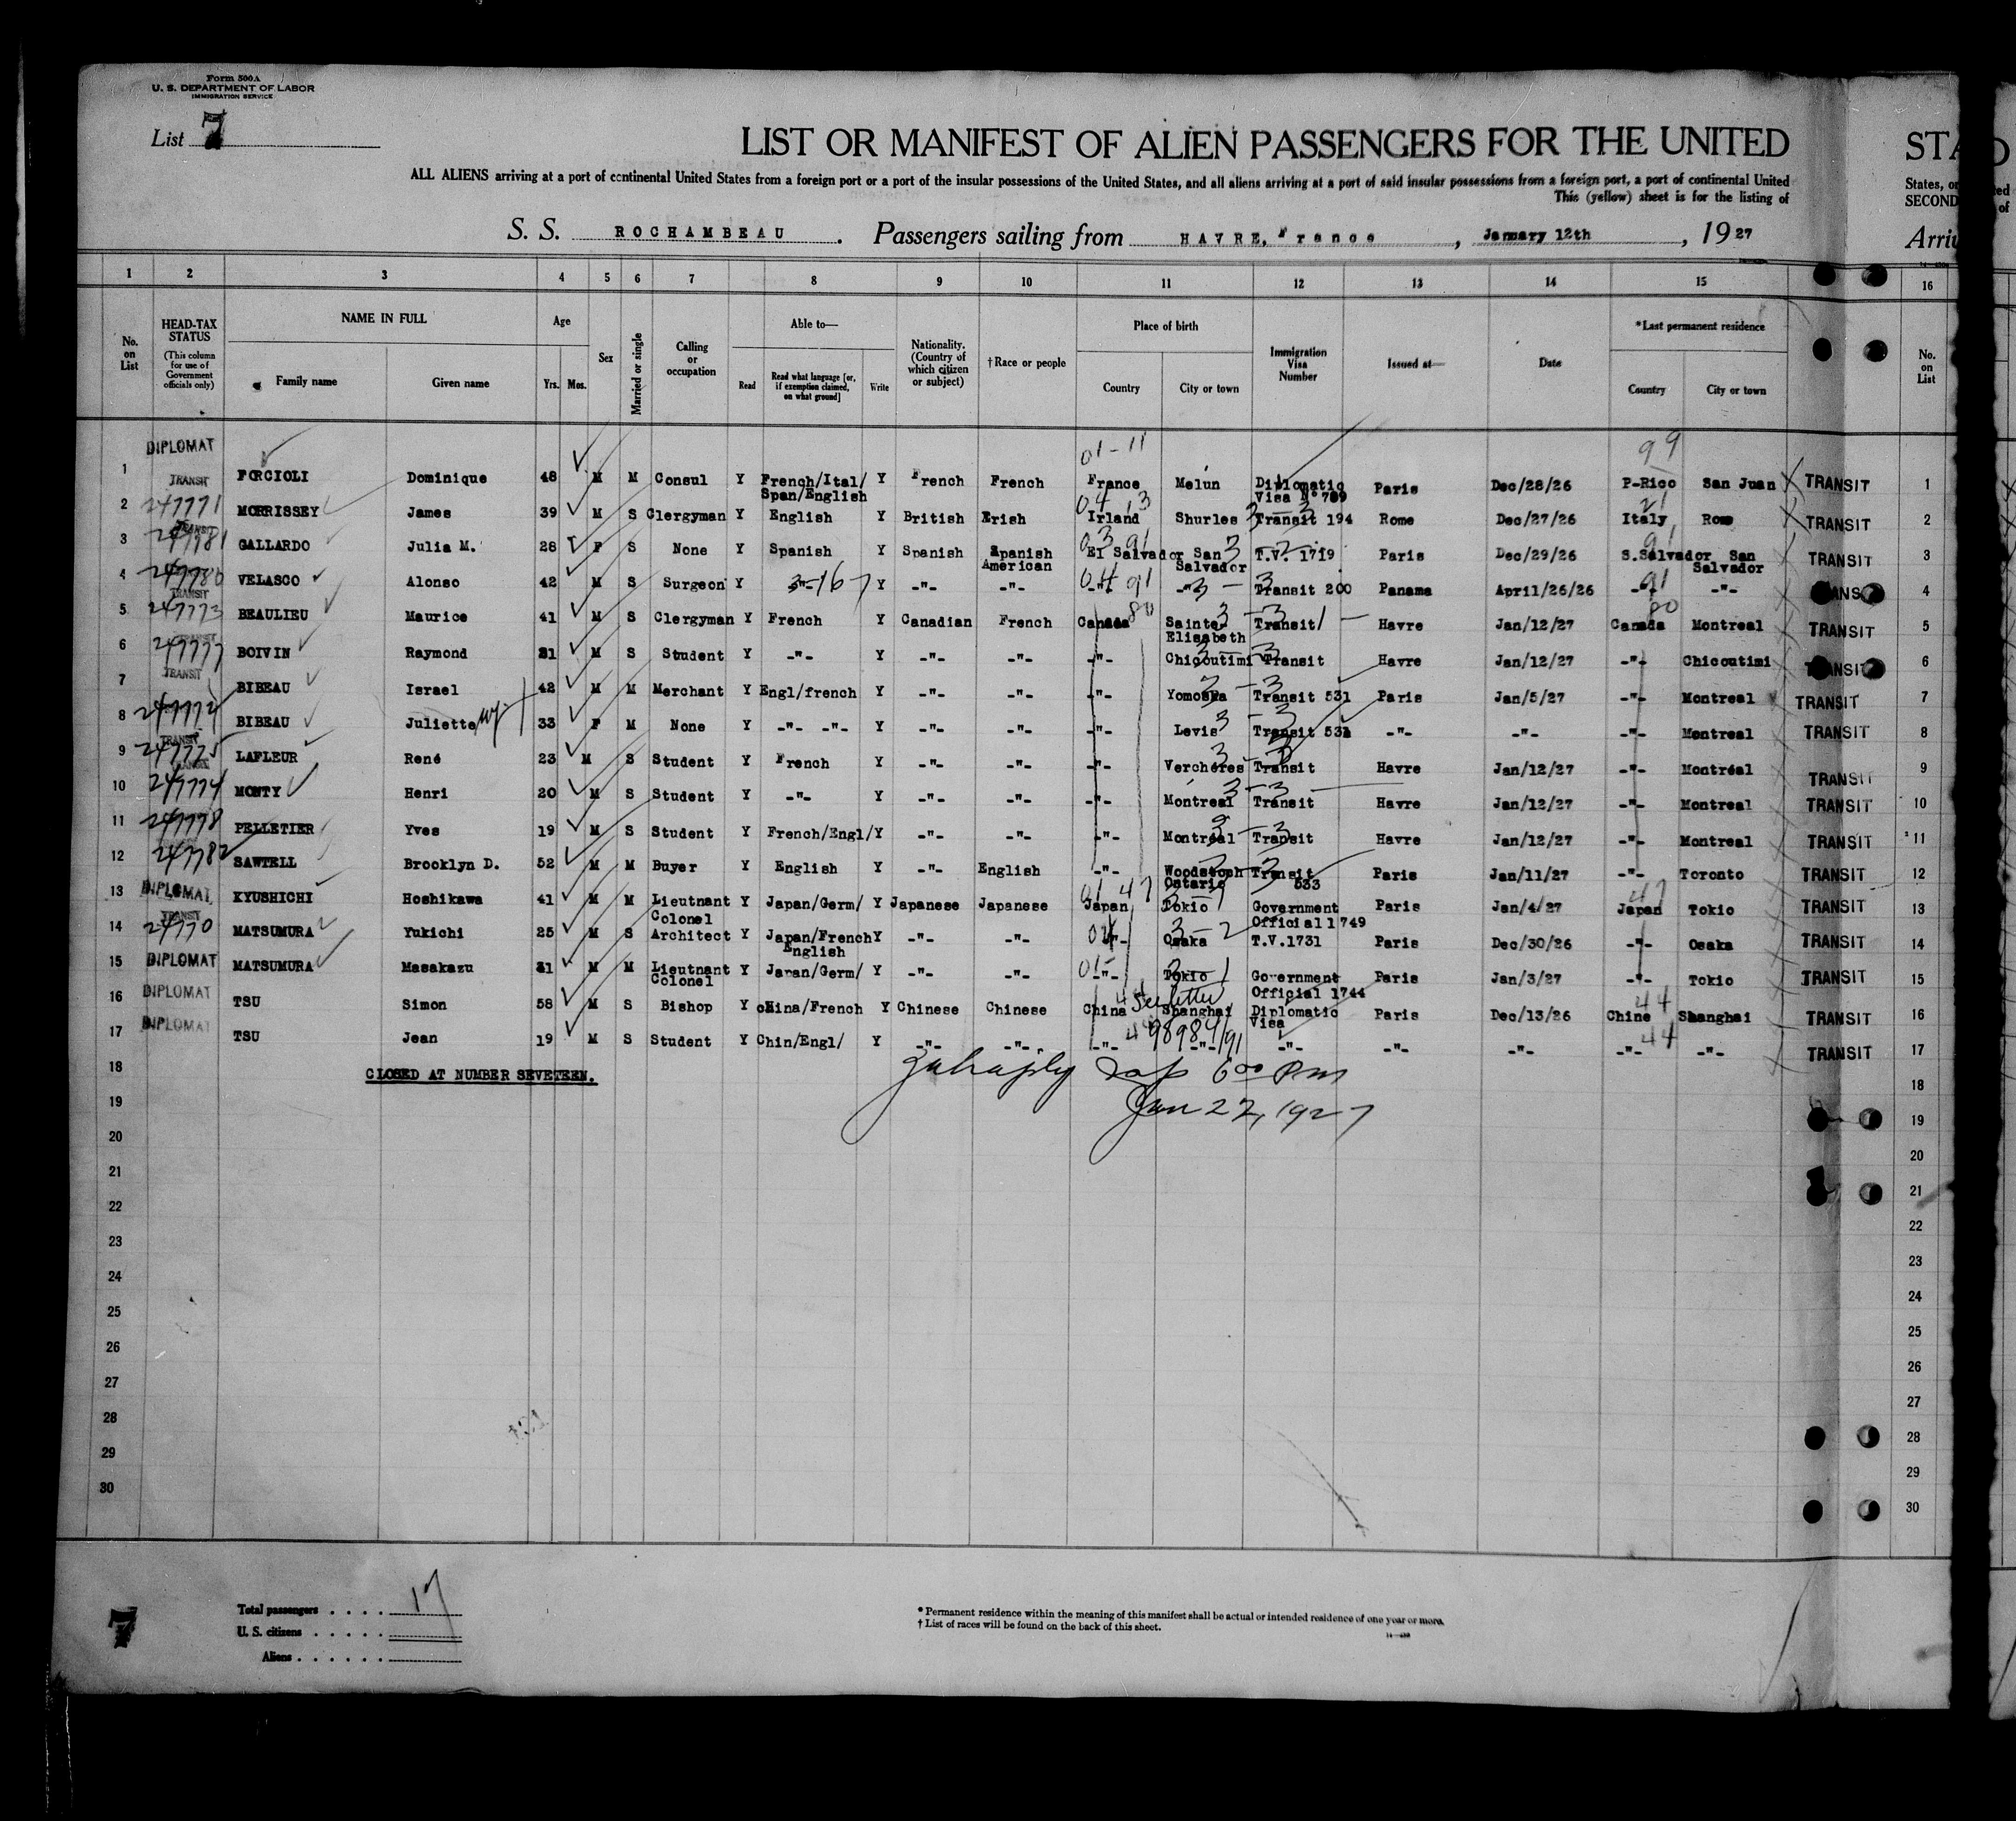 Form 500A
U. S. DEPARTMENT OF LABOR
IMMIGRATION SERVICE
List 7
LIST OR MANIFEST OF ALIEN PASSENGERS FOR THE UNITED
ALL ALIENS arriving at a port of continental United States from a foreign port or a port of the insular possessions of the United States, and all aliens arriving at a port of said insular possessions from a foreign port, a port of continental United
This (yellow) sheet is for the listing of
S. S. ROCHAMBEAU. Passengers sailing from HAVRE, France, January 12th, 1927
1 2 3 4 5 6 7 8 9 10 11 12 13 14 15 16
No. on List
HEAD-TAX STATUS
(This column for use of Government officials only)
NAME IN FULL
Family name Given name
Age
Yrs. Mos.
Sex
Married or single
Calling or occupation
Able to—
Read
Read what language [or, if exemption claimed, on what ground]
Write
Nationality. (Country of which citizen or subject)
†Race or people
Place of birth
Country City or town
Immigration Visa Number
Issued at—
Date
*Last permanent residence
Country City or town
No. on List
01-11 99
1 DIPLOMAT FORCIOLI Dominique 48 M M Consul Y French/Ital/ Span/English Y French French France Melun Diplomatic Visa N° 709 Paris Dec/28/26 P-Rico San Juan TRANSIT 1
2 TRANSIT 247771 MORRISSEY James 39 M S Clergyman Y English Y British Erish Irland Shurles Transit 194 Rome Dec/27/26 Italy Rome TRANSIT 2
3 TRANSIT 247781 GALLARDO Julia M. 28 F S None Y Spanish Y Spanish Spanish American El Salvador San Salvador T.V. 1719 Paris Dec/29/26 S.Salvador San Salvador TRANSIT 3
4 247780 VELASCO Alonso 42 M S Surgeon Y -"- Y -"- -"- -"- -"- Transit 200 Panama April/26/26 -"- -"- TRANSIT 4
5 TRANSIT 247773 BEAULIEU Maurice 41 M S Clergyman Y French Y Canadian French Canada Sainte Elisabeth Transit Havre Jan/12/27 Canada Montreal TRANSIT 5
6 TRANSIT 247777 BOIVIN Raymond 21 M S Student Y -"- Y -"- -"- -"- Chicoutimi Transit Havre Jan/12/27 -"- Chicoutimi TRANSIT 6
7 TRANSIT BIBEAU Israel 42 M M Merchant Y Engl/french Y -"- -"- -"- Yomoska Transit 531 Paris Jan/5/27 -"- Montreal TRANSIT 7
8 247772 BIBEAU Juliette 33 F M None Y -"- -"- Y -"- -"- -"- Levis Transit 532 -"- -"- -"- Montreal TRANSIT 8
9 TRANSIT 247775 LAFLEUR René 23 M S Student Y French Y -"- -"- -"- Verchères Transit Havre Jan/12/27 -"- Montréal TRANSIT 9
10 TRANSIT 247774 MONTY Henri 20 M S Student Y -"- Y -"- -"- -"- Montreal Transit Havre Jan/12/27 -"- Montreal TRANSIT 10
11 247778 PELLETIER Yves 19 M S Student Y French/Engl/ Y -"- -"- -"- Montréal Transit Havre Jan/12/27 -"- Montreal TRANSIT 11
12 247782 SAWTELL Brooklyn D. 52 M M Buyer Y English Y -"- English -"- Woodstoph Ontario Transit 533 Paris Jan/11/27 -"- Toronto TRANSIT 12
13 DIPLOMAT KYUSHICHI Hoshikawa 41 M M Lieutnant Colonel Y Japan/Germ/ Y Japanese Japanese Japan Tokio Government Official 1749 Paris Jan/4/27 Japan Tokio TRANSIT 13
14 TRANSIT 24770 MATSUMURA Yukichi 25 M S Architect Y Japan/French English Y -"- -"- -"- Osaka T.V.1731 Paris Dec/30/26 -"- Osaka TRANSIT 14
15 DIPLOMAT MATSUMURA Masakazu 41 M M Lieutnant Colonel Y Japan/Germ/ Y -"- -"- -"- Tokio Government Official 1744 Paris Jan/3/27 -"- Tokio TRANSIT 15
16 DIPLOMAT TSU Simon 58 M S Bishop Y cHina/French Y Chinese Chinese China Shanghai Diplomatic Visa Paris Dec/13/26 Chine Shanghai TRANSIT 16
17 DIPLOMAT TSU Jean 19 M S Student Y Chin/Engl/ Y -"- -"- -"- -"- -"- -"- -"- -"- -"- TRANSIT 17
see letter
98984/91
18 CLOSED AT NUMBER SEVETEEN. 18
6 00 PM
Jan 22, 1927
19 19
20 20
21 21
22 22
23 23
24 24
25 25
26 26
27 27
28 28
29 29
30 30
Total passengers . . . . 17
U. S. citizens . . . . .
Aliens . . . . . .
* Permanent residence within the meaning of this manifest shall be actual or intended residence of one year or more.
† List of races will be found on the back of this sheet.
7
STA
States, or
SECOND
Arriv